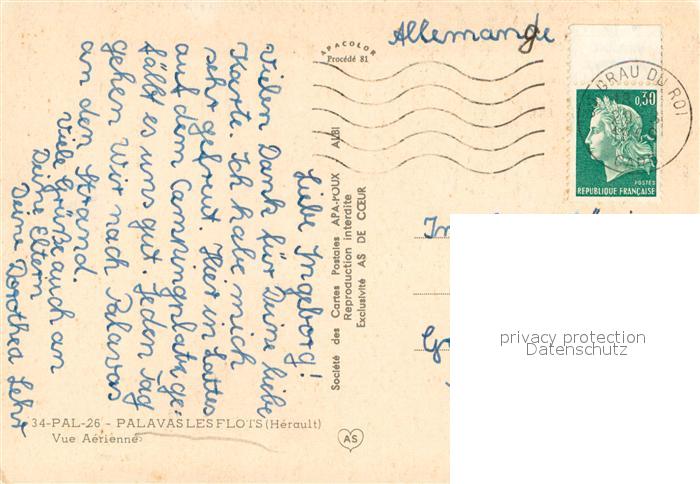 Liebe Ingeborg!
Vielen Dank für Deine liebe
Karte. Ich habe mich
sehr gefreut. Hier in Lattes
auf dem Campingplatz ge-
fällt es uns gut. Jeden Tag
gehen wir nach Palavas
an den Strand.
Viele Grüße auch an
Deine Eltern
Deine Dorothea Lehr
34-PAL-26 - PALAVAS LES FLOTS (Hérault)
Vue Aérienne
APACOLOR
Procédé 81
Société des Cartes Postales APA-POUX ALBI
Reproduction interdite
Exclusivité AS DE CŒUR
AS
Allemange
GRAU DU ROI
0,30
POSTES
REPUBLIQUE FRANÇAISE
privacy protection
Datenschutz